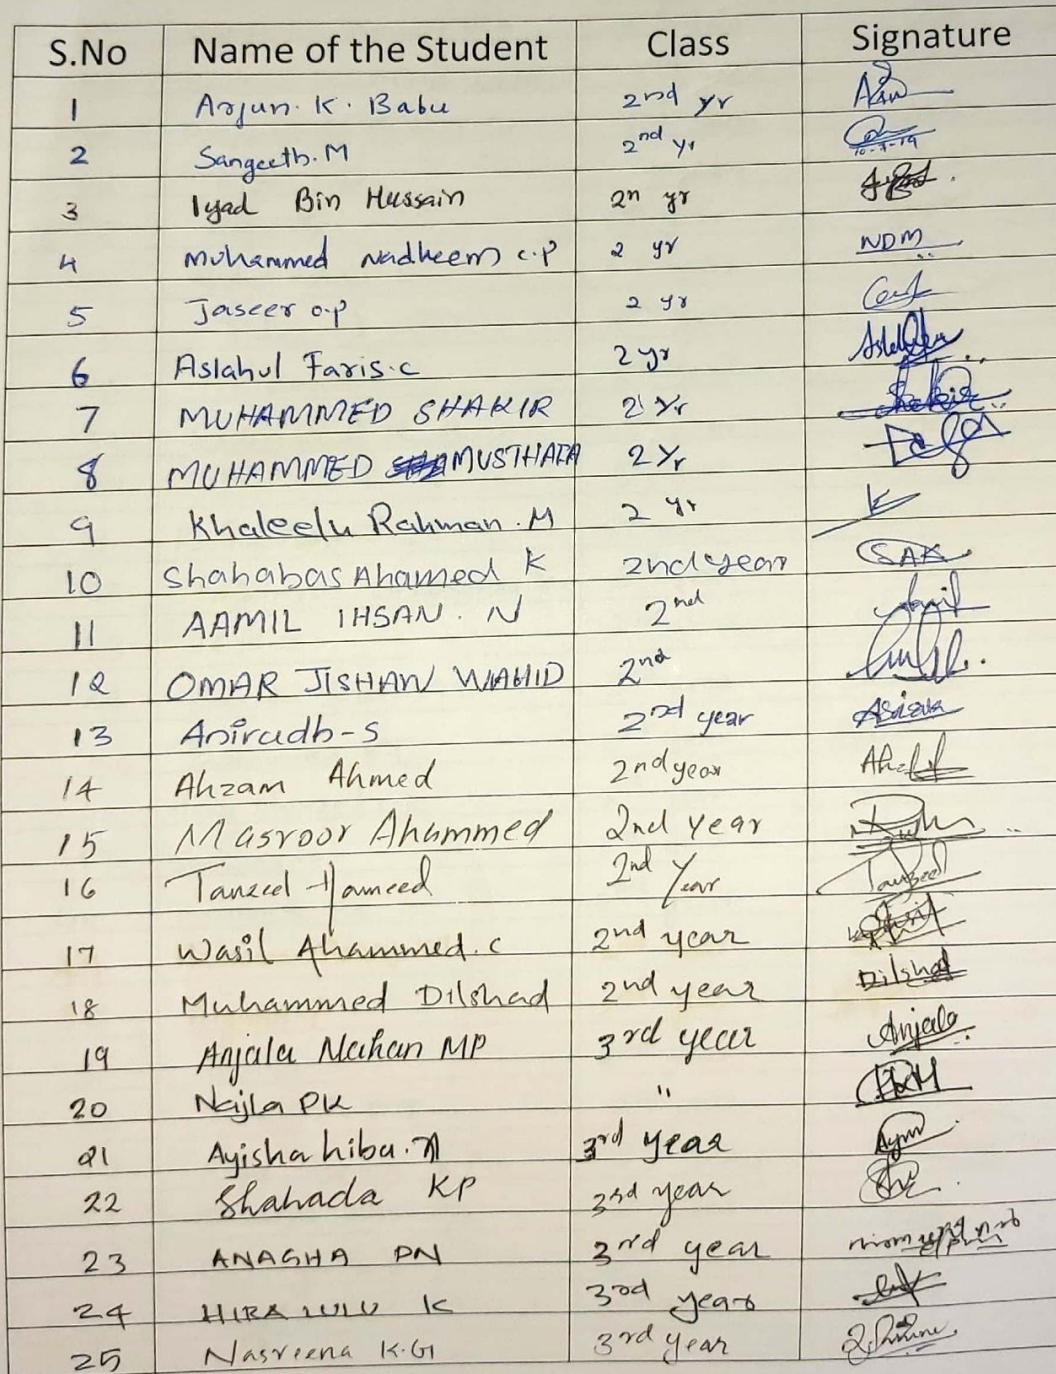 S.No Name of the Student Class Signature
1 Arjun. K. Babu 2nd yr
2 Sangeeth. M 2nd yr 10-7-19
3 Iyad Bin Hussain 2n yr
4 Muhammed Nadheem c.p 2 yr NDM
5 Jaseer o.p 2 yr
6 Aslahul Faris.c 2 yr
7 MUHAMMED SHAKIR 2 Yr Shakir
8 MUHAMMED MUSTHAFA 2 Yr
9 Khaleelu Rahman . M 2 yr K
10 Shahabas Ahamed K 2nd year SAK
11 AAMIL IHSAN . N 2nd
12 OMAR JISHAN WAHID 2nd
13 Anirudh-S 2nd year
14 Ahzam Ahmed 2nd year
15 Masroor Ahammed 2nd year
16 Tanzeel Hameed 2nd Year Tanzeel
17 Wasil Ahammed. c 2nd year
18 Muhammed Dilshad 2nd year Dilshad
19 Anjala Mehan MP 3rd year Anjala
20 Najla PK "
21 Ayisha hiba. N 3rd year
22 Shahada KP 3rd year
23 ANAGHA PN 3rd year
24 HIRA LULU K 3rd year
25 Nasreena K.G 3rd year